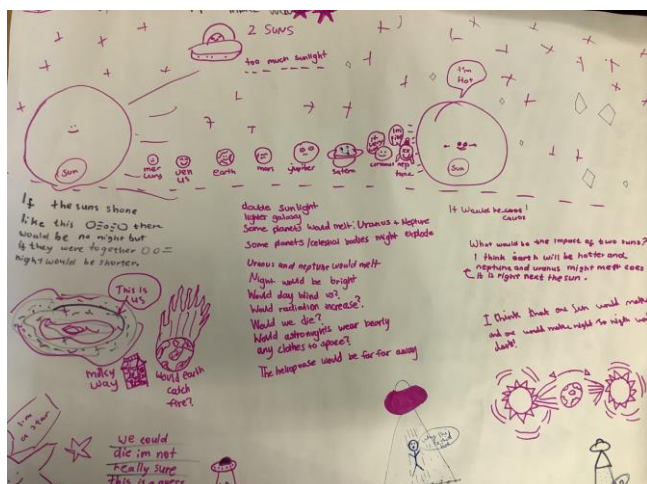 2 SUNS
too much sunlight
I'm
Hot
Sun
Sun
mer
cury
ven
us
earth
mars
jupiter
saturn
nep
tune
If the suns shone
like this O=o=O then
would be no night but
if they were together O O =
night would be shorter.
double sunlight
lighter galaxy
Some planets would melt: Uranus & Neptune
Some planets/celestial bodies might explode
Uranus and neptune would melt
Night would be bright
Would day blind us?
Would radiation increase?
Would we die?
Would astronights wear bearly
any clothes to space?
The heliopause would be far far away
It Would be
What would be the impact of two suns?
I think earth will be hotter and
neptune and uranus might melt coes
it is right next the sun.
I think that one Sun would make
and one would make night so night
dark!
This is
us
milky
way
Would earth
catch
fire?
I'm
a star
we could
die im not
really sure
this is a guess